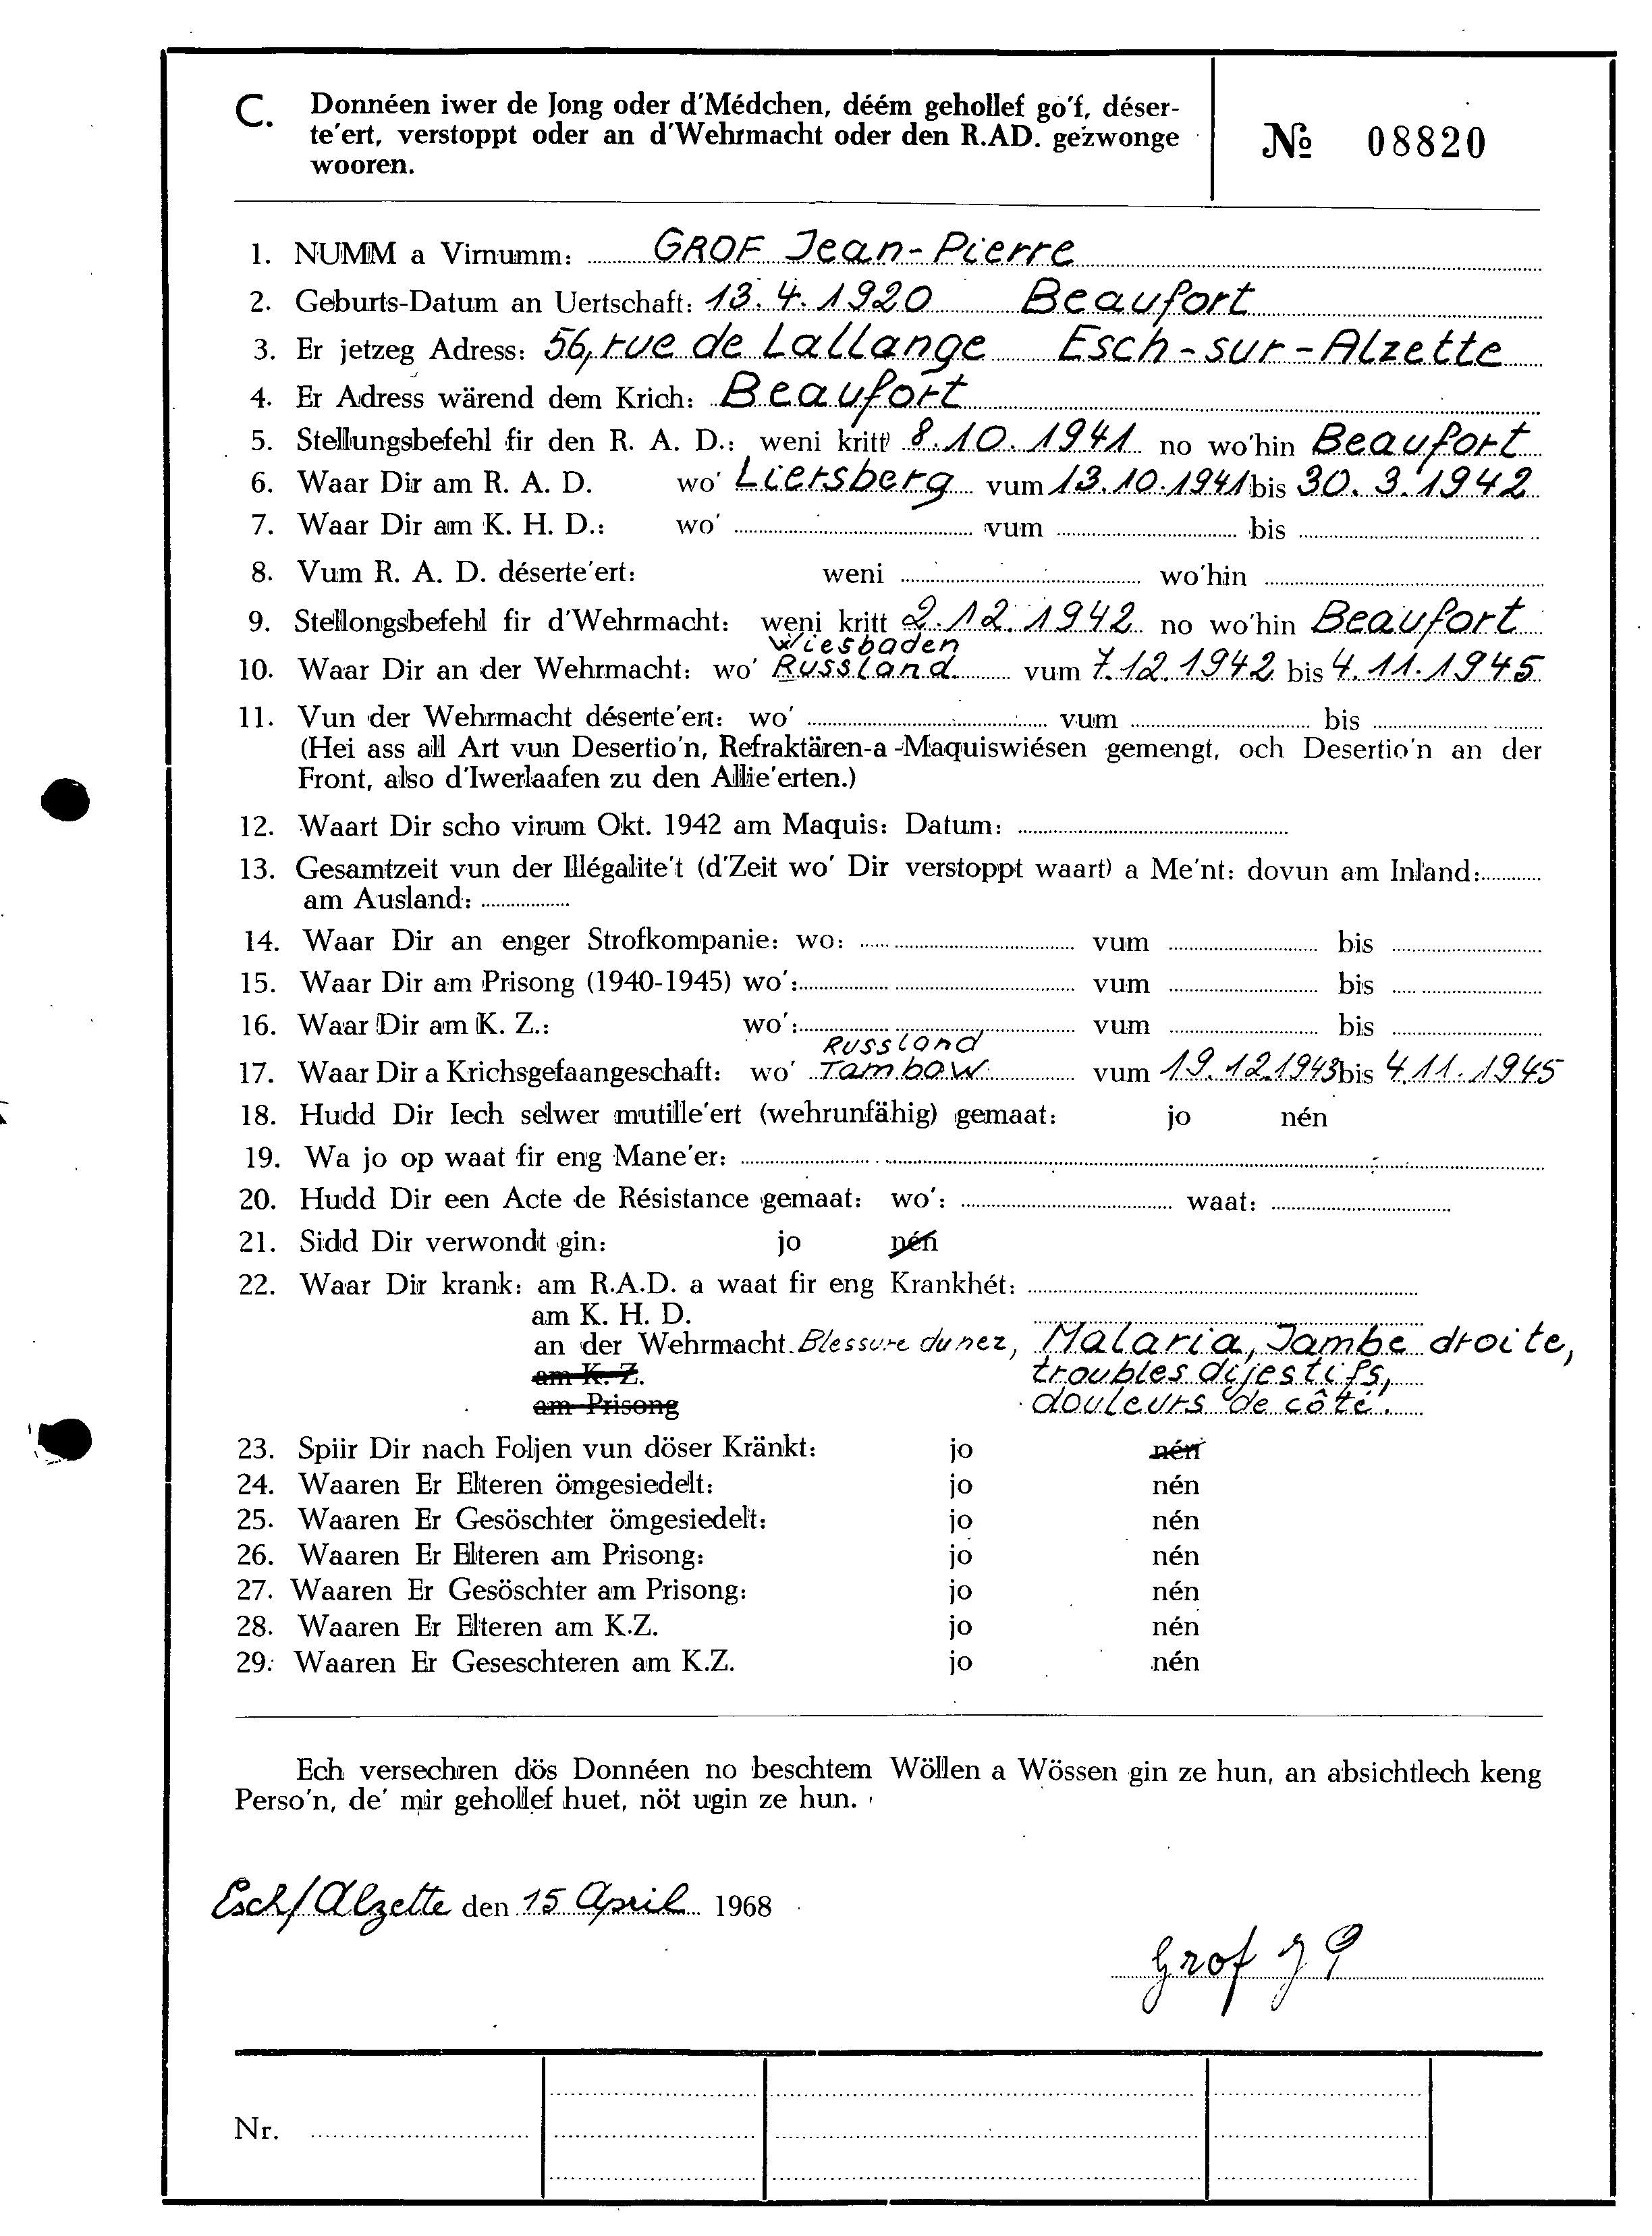 C. Donnéen iwer de Jong oder d'Médchen, déém gehollef go'f, déser-
te'ert, verstoppt oder an d'Wehrmacht oder den R.AD. gezwonge
wooren.
№ 08820
1. NUMM a Virnumm: GROF Jean-Pierre
2. Geburts-Datum an Uertschaft: 13.4.1920 Beaufort
3. Er jetzeg Adress: 56, rue de Lallange Esch-sur-Alzette
4. Er Adress wärend dem Krich: Beaufort
5. Stellungsbefehl fir den R. A. D.: weni kritt 8.10.1941 no wo'hin Beaufort
6. Waar Dir am R. A. D. wo' Liersberg vum 13.10.1941 bis 30.3.1942
7. Waar Dir am K. H. D.: wo' vum bis
8. Vum R. A. D. déserte'ert: weni wo'hin
9. Stellongsbefehl fir d'Wehrmacht: weni kritt 2.12.1942 no wo'hin Beaufort
Wiesbaden
10. Waar Dir an der Wehrmacht: wo' Russland vum 7.12.1942 bis 4.11.1945
11. Vun der Wehrmacht déserte'ert: wo' vum bis
(Hei ass all Art vun Desertio'n, Refraktären-a-Maquiswiésen gemengt, och Desertio'n an der
Front, also d'Iwerlaafen zu den Allie'erten.)
12. Waart Dir scho virum Okt. 1942 am Maquis: Datum:
13. Gesamtzeit vun der Illégalite't (d'Zeit wo' Dir verstoppt waart) a Me'nt: dovun am Inland:
am Ausland:
14. Waar Dir an enger Strofkompanie: wo: vum bis
15. Waar Dir am Prisong (1940-1945) wo': vum bis
16. Waar Dir am K. Z.: wo': vum bis
Russland
17. Waar Dir a Krichsgefaangeschaft: wo' Tambow vum 19.12.1943 bis 4.11.1945
18. Hudd Dir Iech selwer mutille'ert (wehrunfähig) gemaat: jo nén
19. Wa jo op waat fir eng Mane'er:
20. Hudd Dir een Acte de Résistance gemaat: wo': waat:
21. Sidd Dir verwondt gin: jo nén
22. Waar Dir krank: am R.A.D. a waat fir eng Krankhét:
am K. H. D.
an der Wehrmacht. Blessure du nez, Malaria, Jambe droite,
am K. Z. troubles dijestifs,
am Prisong douleurs de côté.
23. Spiir Dir nach Foljen vun döser Kränkt: jo nén
24. Waaren Er Elteren ömgesiedelt: jo nén
25. Waaren Er Gesöschter ömgesiedelt: jo nén
26. Waaren Er Elteren am Prisong: jo nén
27. Waaren Er Gesöschter am Prisong: jo nén
28. Waaren Er Elteren am K.Z. jo nén
29. Waaren Er Geseschteren am K.Z. jo nén
Ech versechren dös Donnéen no beschtem Wöllen a Wössen gin ze hun, an absichtlech keng
Perso'n, de' mir gehollef huet, nöt ugin ze hun.
Esch/Alzette den 15 April 1968
Grof J P
Nr.